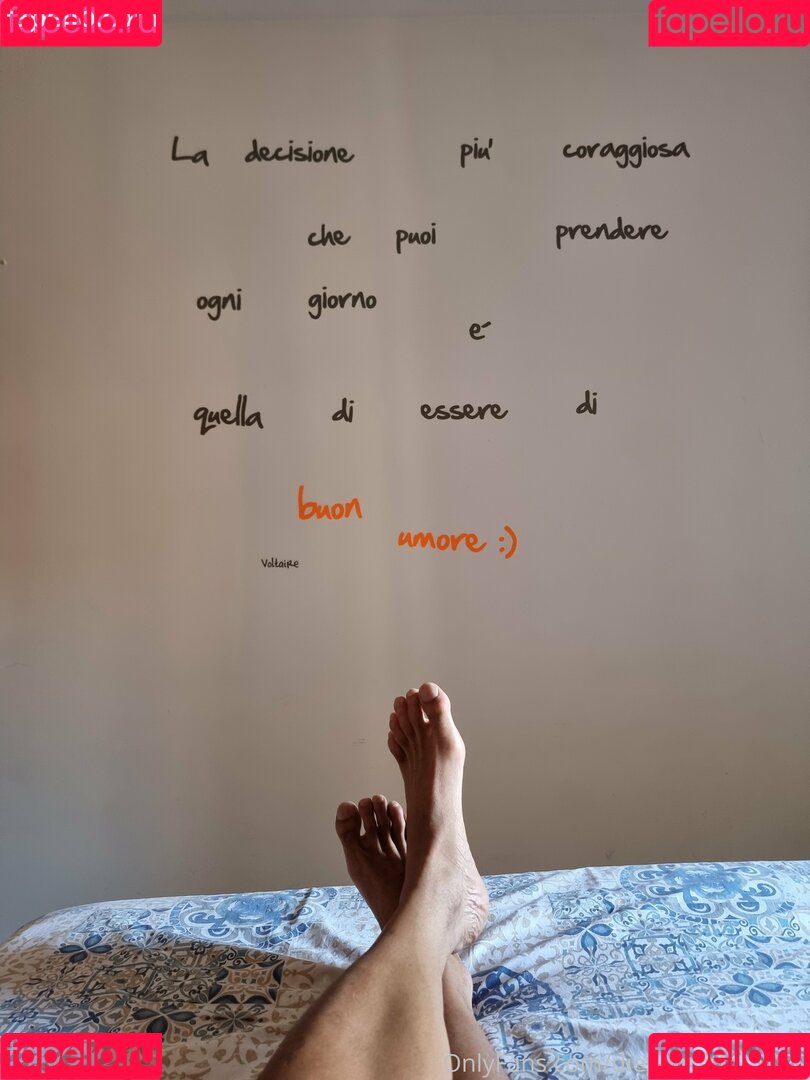 fapello.ru fapello.ru
La decisione piu' coraggiosa
che puoi prendere
ogni giorno
e'
quella di essere di
buon
umore :)
Voltaire
fapello.ru fapello.ru
OnlyFans.com